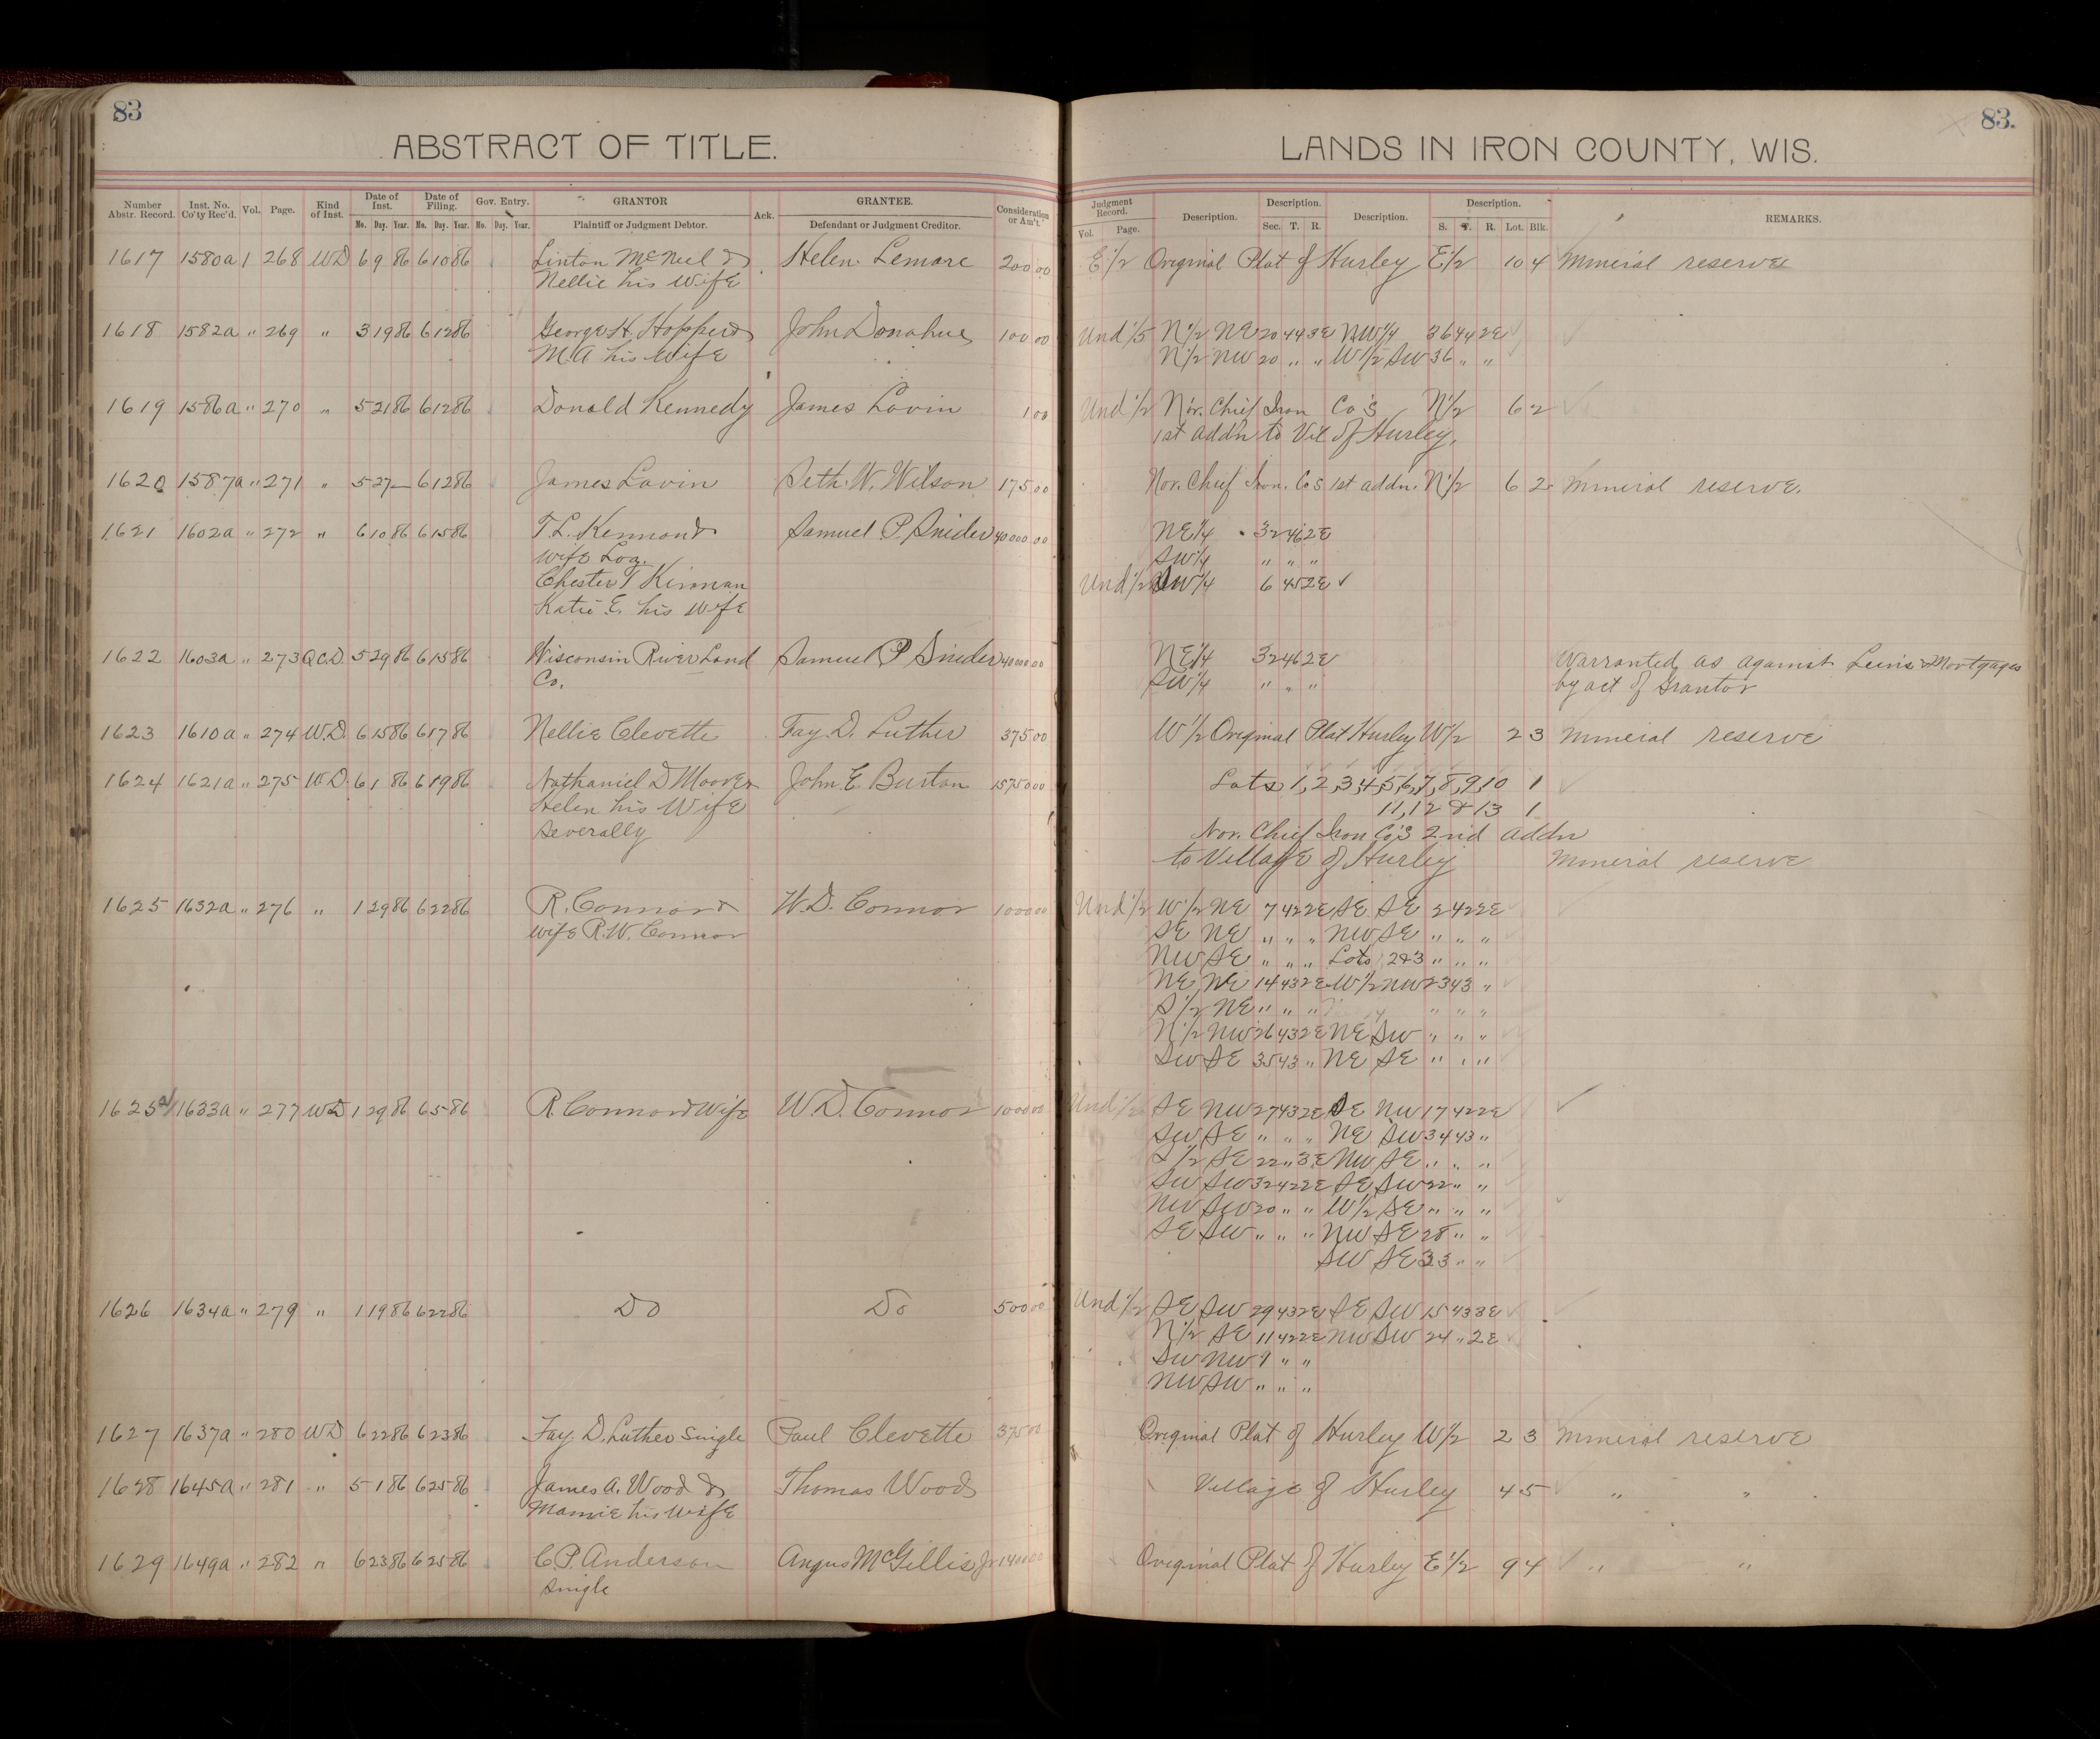 83
ABSTRACT OF TITLE.
Number Abstr. Record. Inst. No. Co'ty Rec'd. Vol. Page. Kind of Inst. Date of Inst. Mo. Day. Year. Date of Filing. Mo. Day. Year. Gov. Entry. Mo. Day. Year. GRANTOR Plaintiff or Judgment Debtor. Ack. GRANTEE. Defendant or Judgment Creditor. Consideration or Am't.
1617 1580a 1 268 WD 6 9 86 6 10 86 Linton McNeil & Helen Lemare 200 00
Nellie his Wife
1618 1582a " 269 " 3 19 86 6 12 86 George H. Hopper & John Donahue 100 00
M.A his Wife
1619 1586a " 270 " 5 21 86 6 12 86 Donald Kennedy James Lavin 1 00
1620 1587a " 271 " 5 27 — 6 12 86 James Lavin Seth. W. Wilson 175 00
1621 1602a " 272 " 6 10 86 6 15 86 T. L. Kennan & Samuel P. Snider 40000 00
wife Log.
Chester T Kinman
Katie E. his Wife
1622 1603a " 273 Q.C.D. 5 29 86 6 15 86 Wisconsin River Land Samuel P Snider 40000 00
Co.
1623 1610a " 274 W.D. 6 15 86 6 17 86 Nellie Clevette Fay. D. Luther 375 00
1624 1621a " 275 W.D. 6 1 86 6 19 86 Nathaniel D Moore & John E. Burton 1575 0 00
Helen his Wife
Severally
1625 1632a " 276 " 1 29 86 6 22 86 R. Connor & W. D. Connor 1000 00
wife R. W. Connor
1625a 1633a " 277 WD 1 29 86 6 5 86 R. Connor & Wife W. D. Connor 1000 00
1626 1634a " 279 " 1 19 86 6 22 86 Do Do 500 00
1627 1637a " 280 WD 6 22 86 6 23 86 Fay. D. Luther Single Paul Clevette 375 00
1628 1645a " 281 " 5 1 86 6 25 86 James A. Wood & Thomas Wood
Mamie his Wife
1629 1649a " 282 " 6 23 86 6 25 86 C. P. Anderson Angus McGillis Jr 1400 00
Single
83.
LANDS IN IRON COUNTY, WIS.
Judgment Record. Vol. Page. Description. Description. Sec. T. R. Description. Description. S. T. R. Lot. Blk. REMARKS.
E 1/2 Original Plat of Hurley E 1/2 10 4 Mineral reserve
Und 1/5 N 1/2 NE 20 44 3E NW 1/4 36 44 2E
N 1/2 NW 20 " " W 1/2 SW 36 " "
Und 1/2 Nor. Chief Iron Co's N 1/2 6 2
1st addn to Vil of Hurley.
Nor. Chief Iron. Co's 1st addn. N 1/2 6 2 Mineral reserve.
NE 1/4 32 46 2E
SW 1/4 " " "
Und 1/2 SW 1/4 6 45 2E ✓
NE 1/4 32 46 2E Warranted as against Leins & Mortgages
SW 1/4 " " " by act of Grantor
W 1/2 Original Plat Hurley W 1/2 2 3 Mineral reserve
Lots 1, 2, 3, 4, 5, 6, 7, 8, 9, 10 1
11, 12 & 13 1
Nor. Chief Iron Co's 2nd addn
to Village of Hurley Mineral reserve
Und 1/2 W 1/2 NE 7 42 2E SE SE 2 42 2E
SE NE " " " NW SE " " "
NW SE " " " Lots 1 2 & 3 " " "
NE NE 14 43 2E W 1/2 NW 23 43 "
S 1/2 NE " " " " " "
N 1/2 NW 26 43 2E NE SW " " "
SW SE 35 43 " NE SE " " "
Und 1/2 SE NW 27 43 2E SE NW 17 42 2E ✓
SW SE " " " NE SW 34 43 "
S 1/2 SE 22 " 3E NW SE " " "
SW SW 32 42 2E SE SW 22 " "
NW SW 20 " " W 1/2 SE " " "
SE SW " " " NW SE 28 " "
SW SE 33 " "
Und 1/2 SE SW 29 43 2E SE SW 15 43 3E
N 1/2 SE 11 42 2E NW SW 24 " 2E
SW NW 9 " "
NW SW " " "
Original Plat of Hurley W 1/2 2 3 Mineral reserve
Village of Hurley 4 5 " "
Original Plat of Hurley E 1/2 9 4 " "